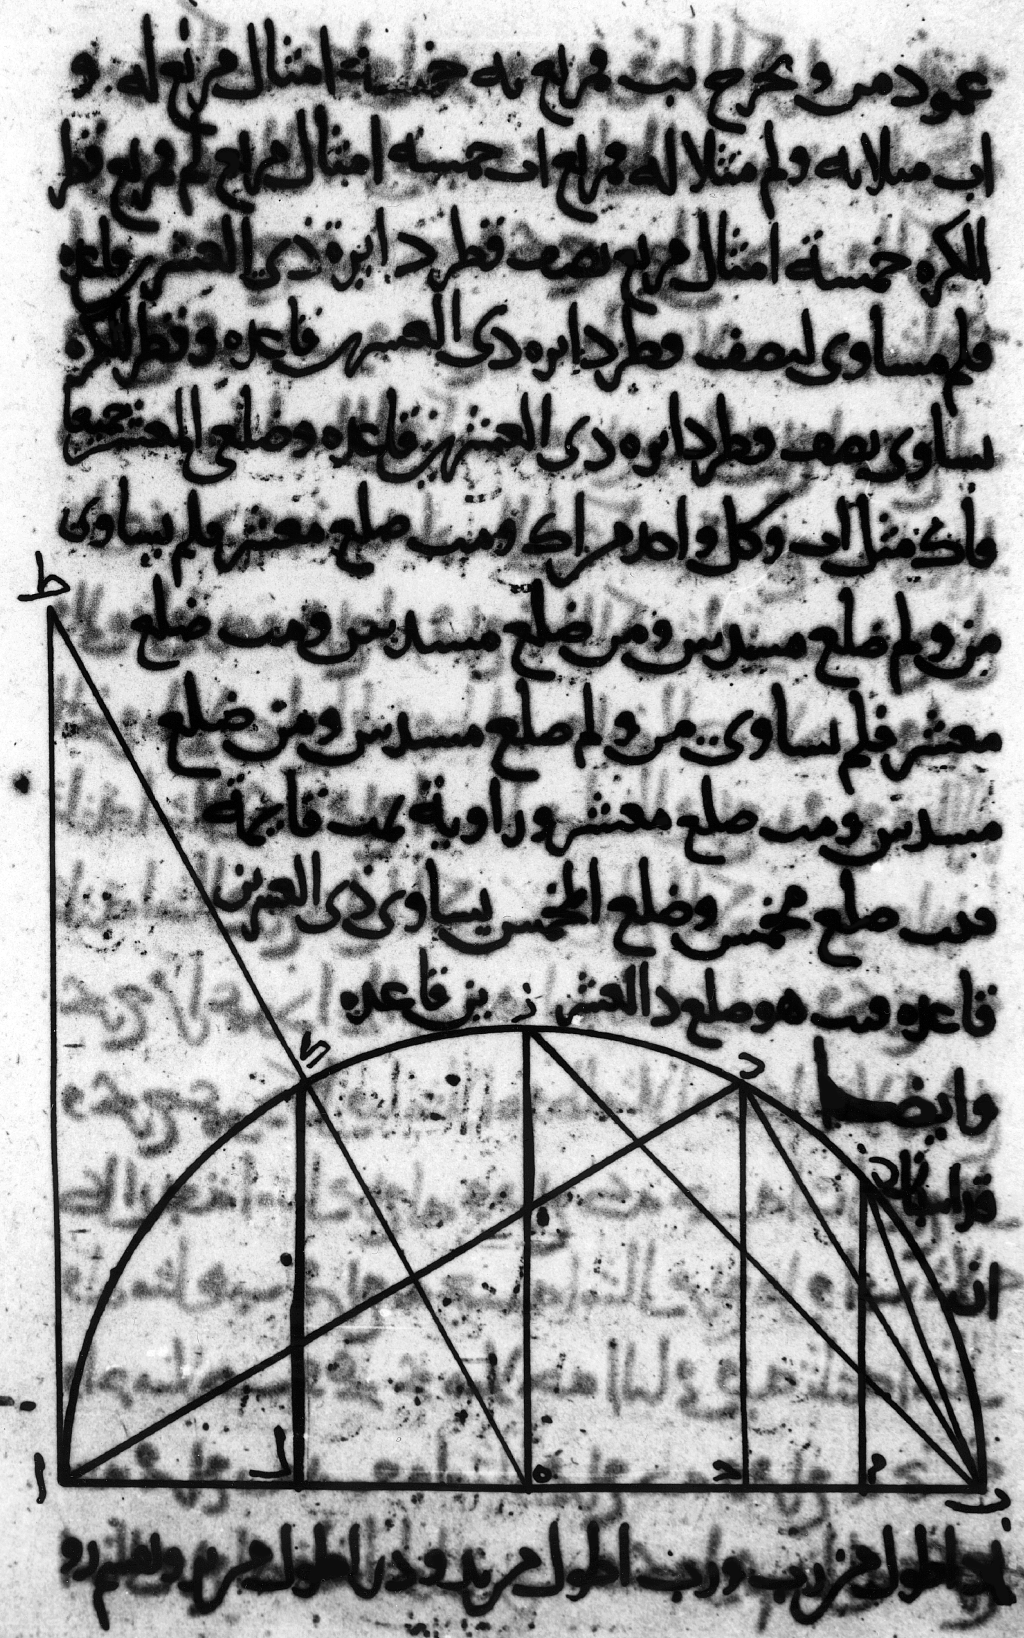 عمود من و نخرج نب فمربع به خمسة امثال مربع له و
اب مثلا به ولم مثلا له فمربع اب خمسة امثال مربع لم فمربع قطر
الكره خمسة امثال مربع نصف قطر دايرة ذي العشرين قاعده
فلم مساوى لنصف قطر دايره ذى العشرين قاعده وقطر الكره
يساوى نصف قطر دايره ذى العشرين قاعده وضلعى المعشر جميعا
فاك مثل اب وكل واحد من اك ومب ضلع معشر فلم يساوى
من ولم ضلع مسدس ومن ضلع مسدس ومب ضلع
معشر فلم يساوى من ولم ضلع مسدس ومن ضلع
مسدس ومب ضلع معشر وزاوية نمب قايمة
فنب ضلع مخمس وضلع المخمس يساوى ذى العشرين
قاعده فنب هو ضلع ذ العشر ين قاعده
وايضا
ان
ط
ح
ز
د
ا
ل
ه
ح
م
ب
اطول من زب و زب اطول من بد و در اطول من بد